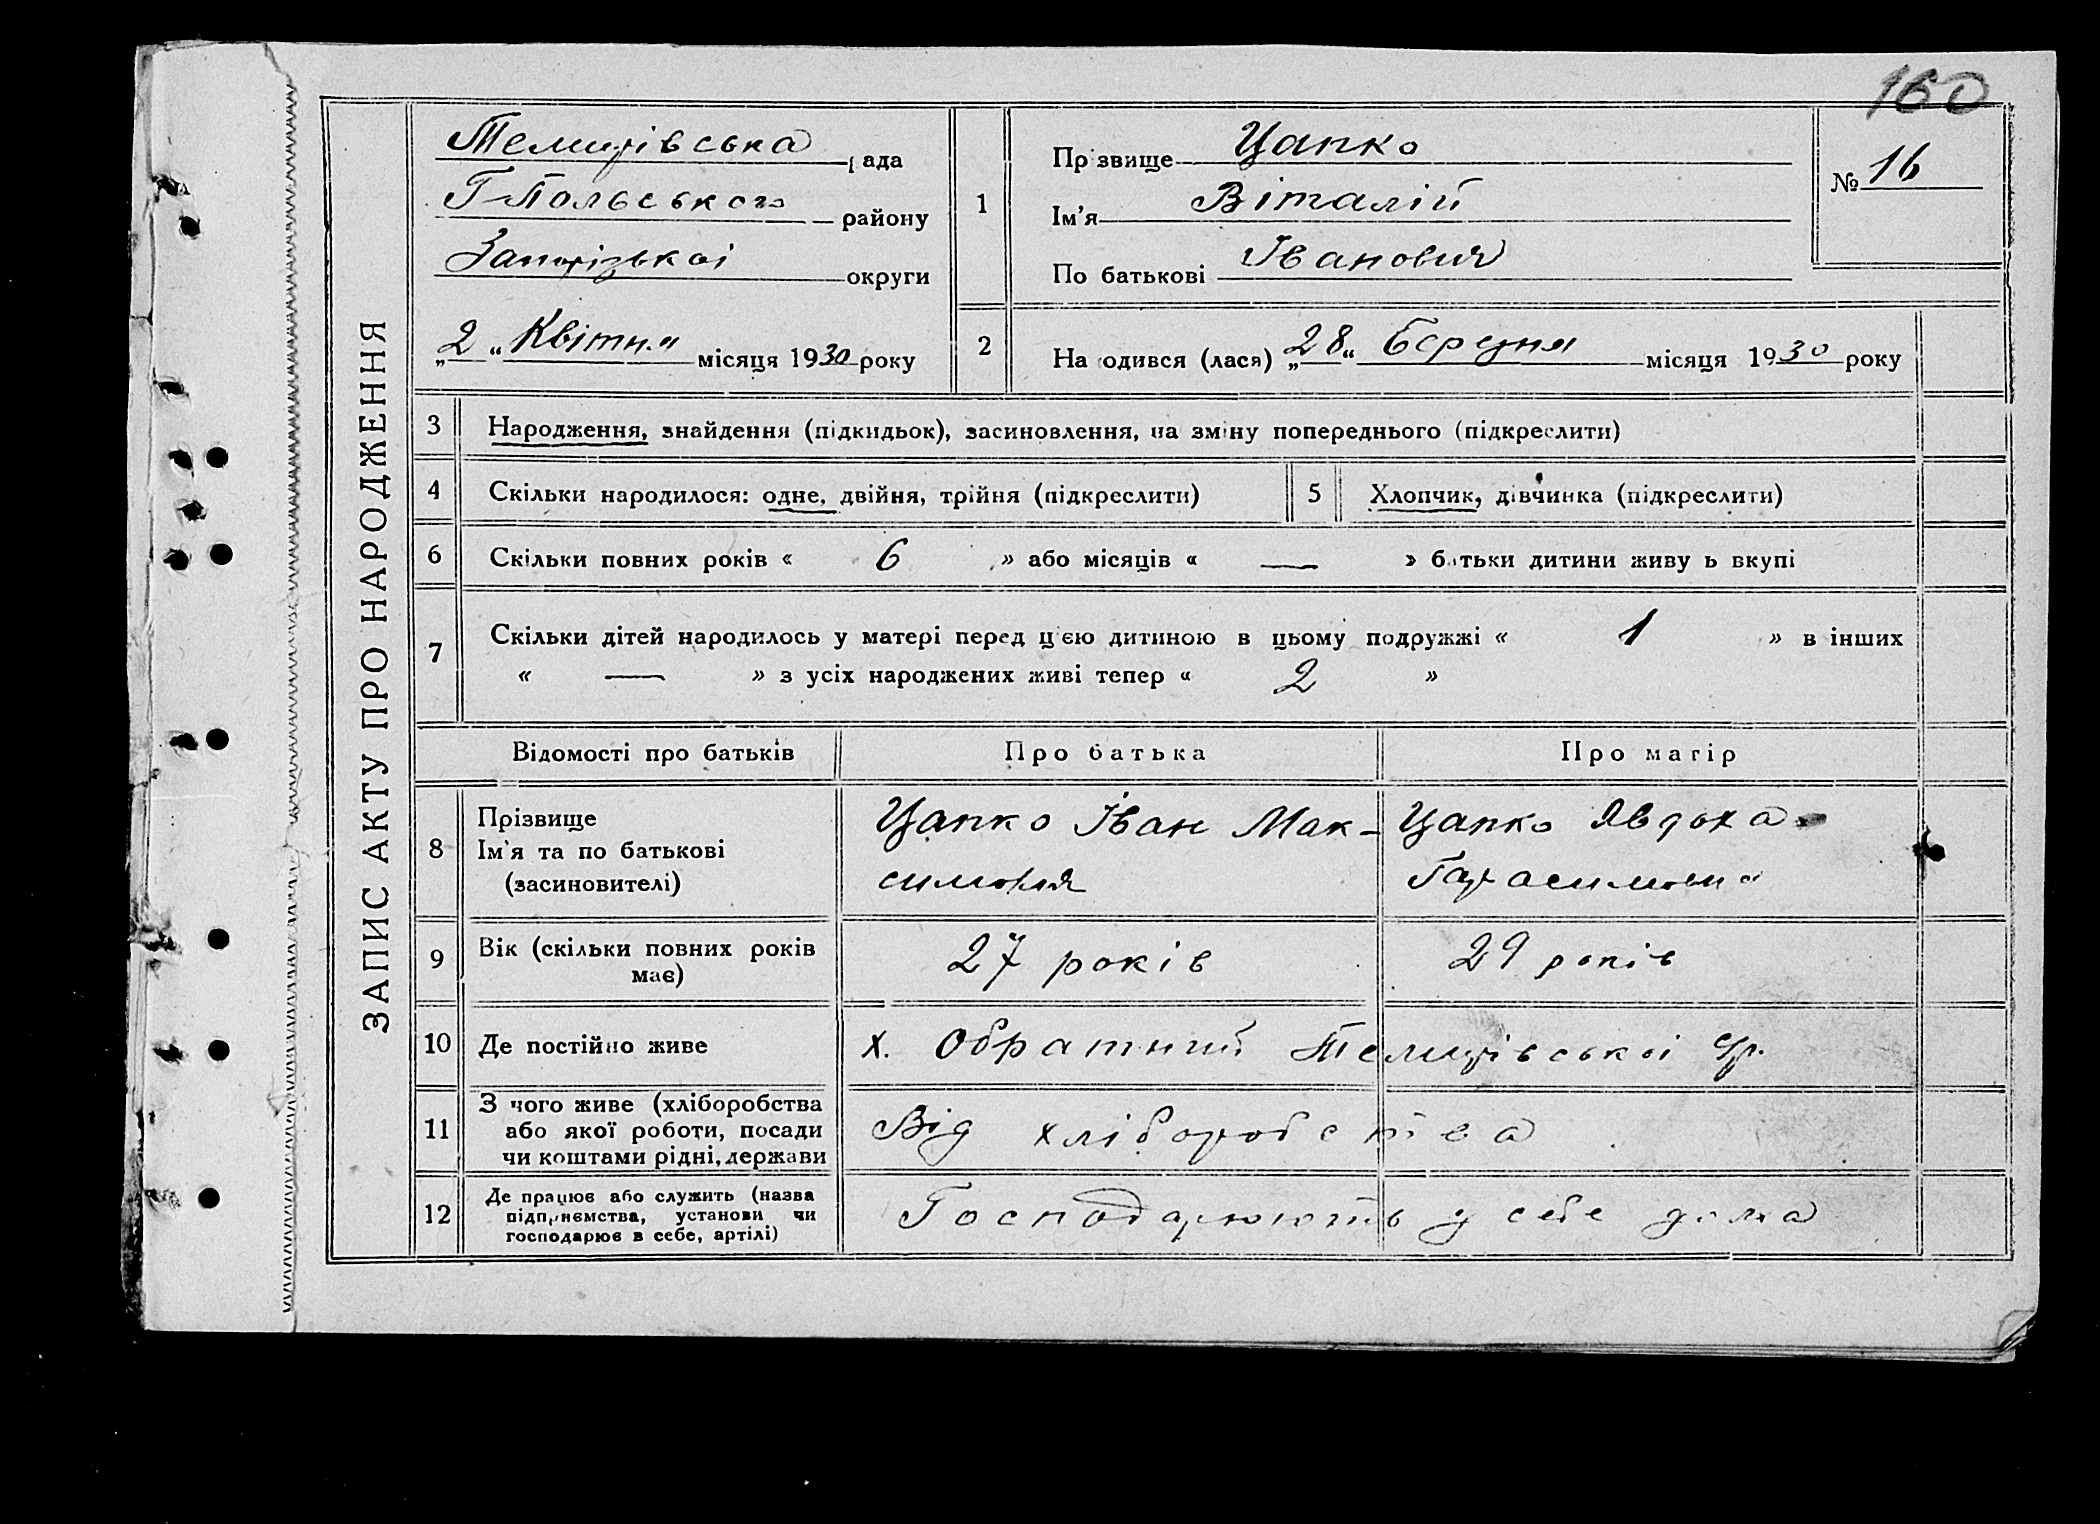 160
ЗАПИС АКТУ ПРО НАРОДЖЕННЯ
Темирівська рада
Г-Польського району
Запорізької округи
„2“ Квітня місяця 1930 року
1
Прізвище Цапко
Ім’я Віталій
По батькові Іванович
№ 16
2
Народився (лася) „28“ Березня місяця 1930 року
3 Народження, знайдення (підкидьок), засиновлення, на зміну попереднього (підкреслити)
4 Скільки народилося: одне, двійня, трійня (підкреслити) 5 Хлопчик, дівчинка (підкреслити)
6 Скільки повних років « 6 » або місяців « — » батьки дитини живуть вкупі
7 Скільки дітей народилось у матері перед цією дитиною в цьому подружжі « 1 » в інших
« — » з усіх народжених живі тепер « 2 »
Відомості про батьків Про батька Про матір
8 Прізвище
Ім’я та по батькові
(засиновителі)
Цапко Іван Мак-
симович
Цапко Явдоха
Гарасимовна
9 Вік (скільки повних років
має)
27 років 29 років
10 Де постійно живе х. Обратний Темирівської с/р.
11 З чого живе (хліборобства
або якої роботи, посади
чи коштами рідні, держави
Від хліборобства
12 Де працює або служить (назва
підприємства, установи чи
господарює в себе, артілі)
Господарюють у себе дома